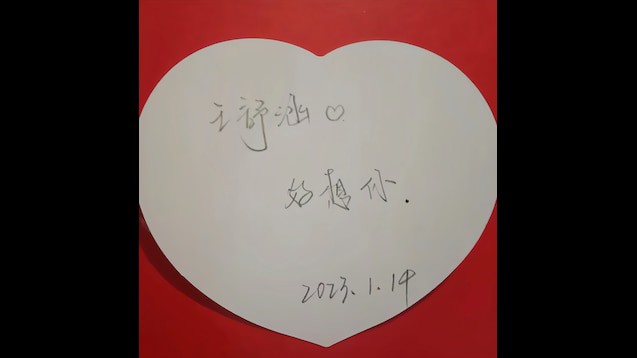 王舒涵♡
好想你.
2023.1.14